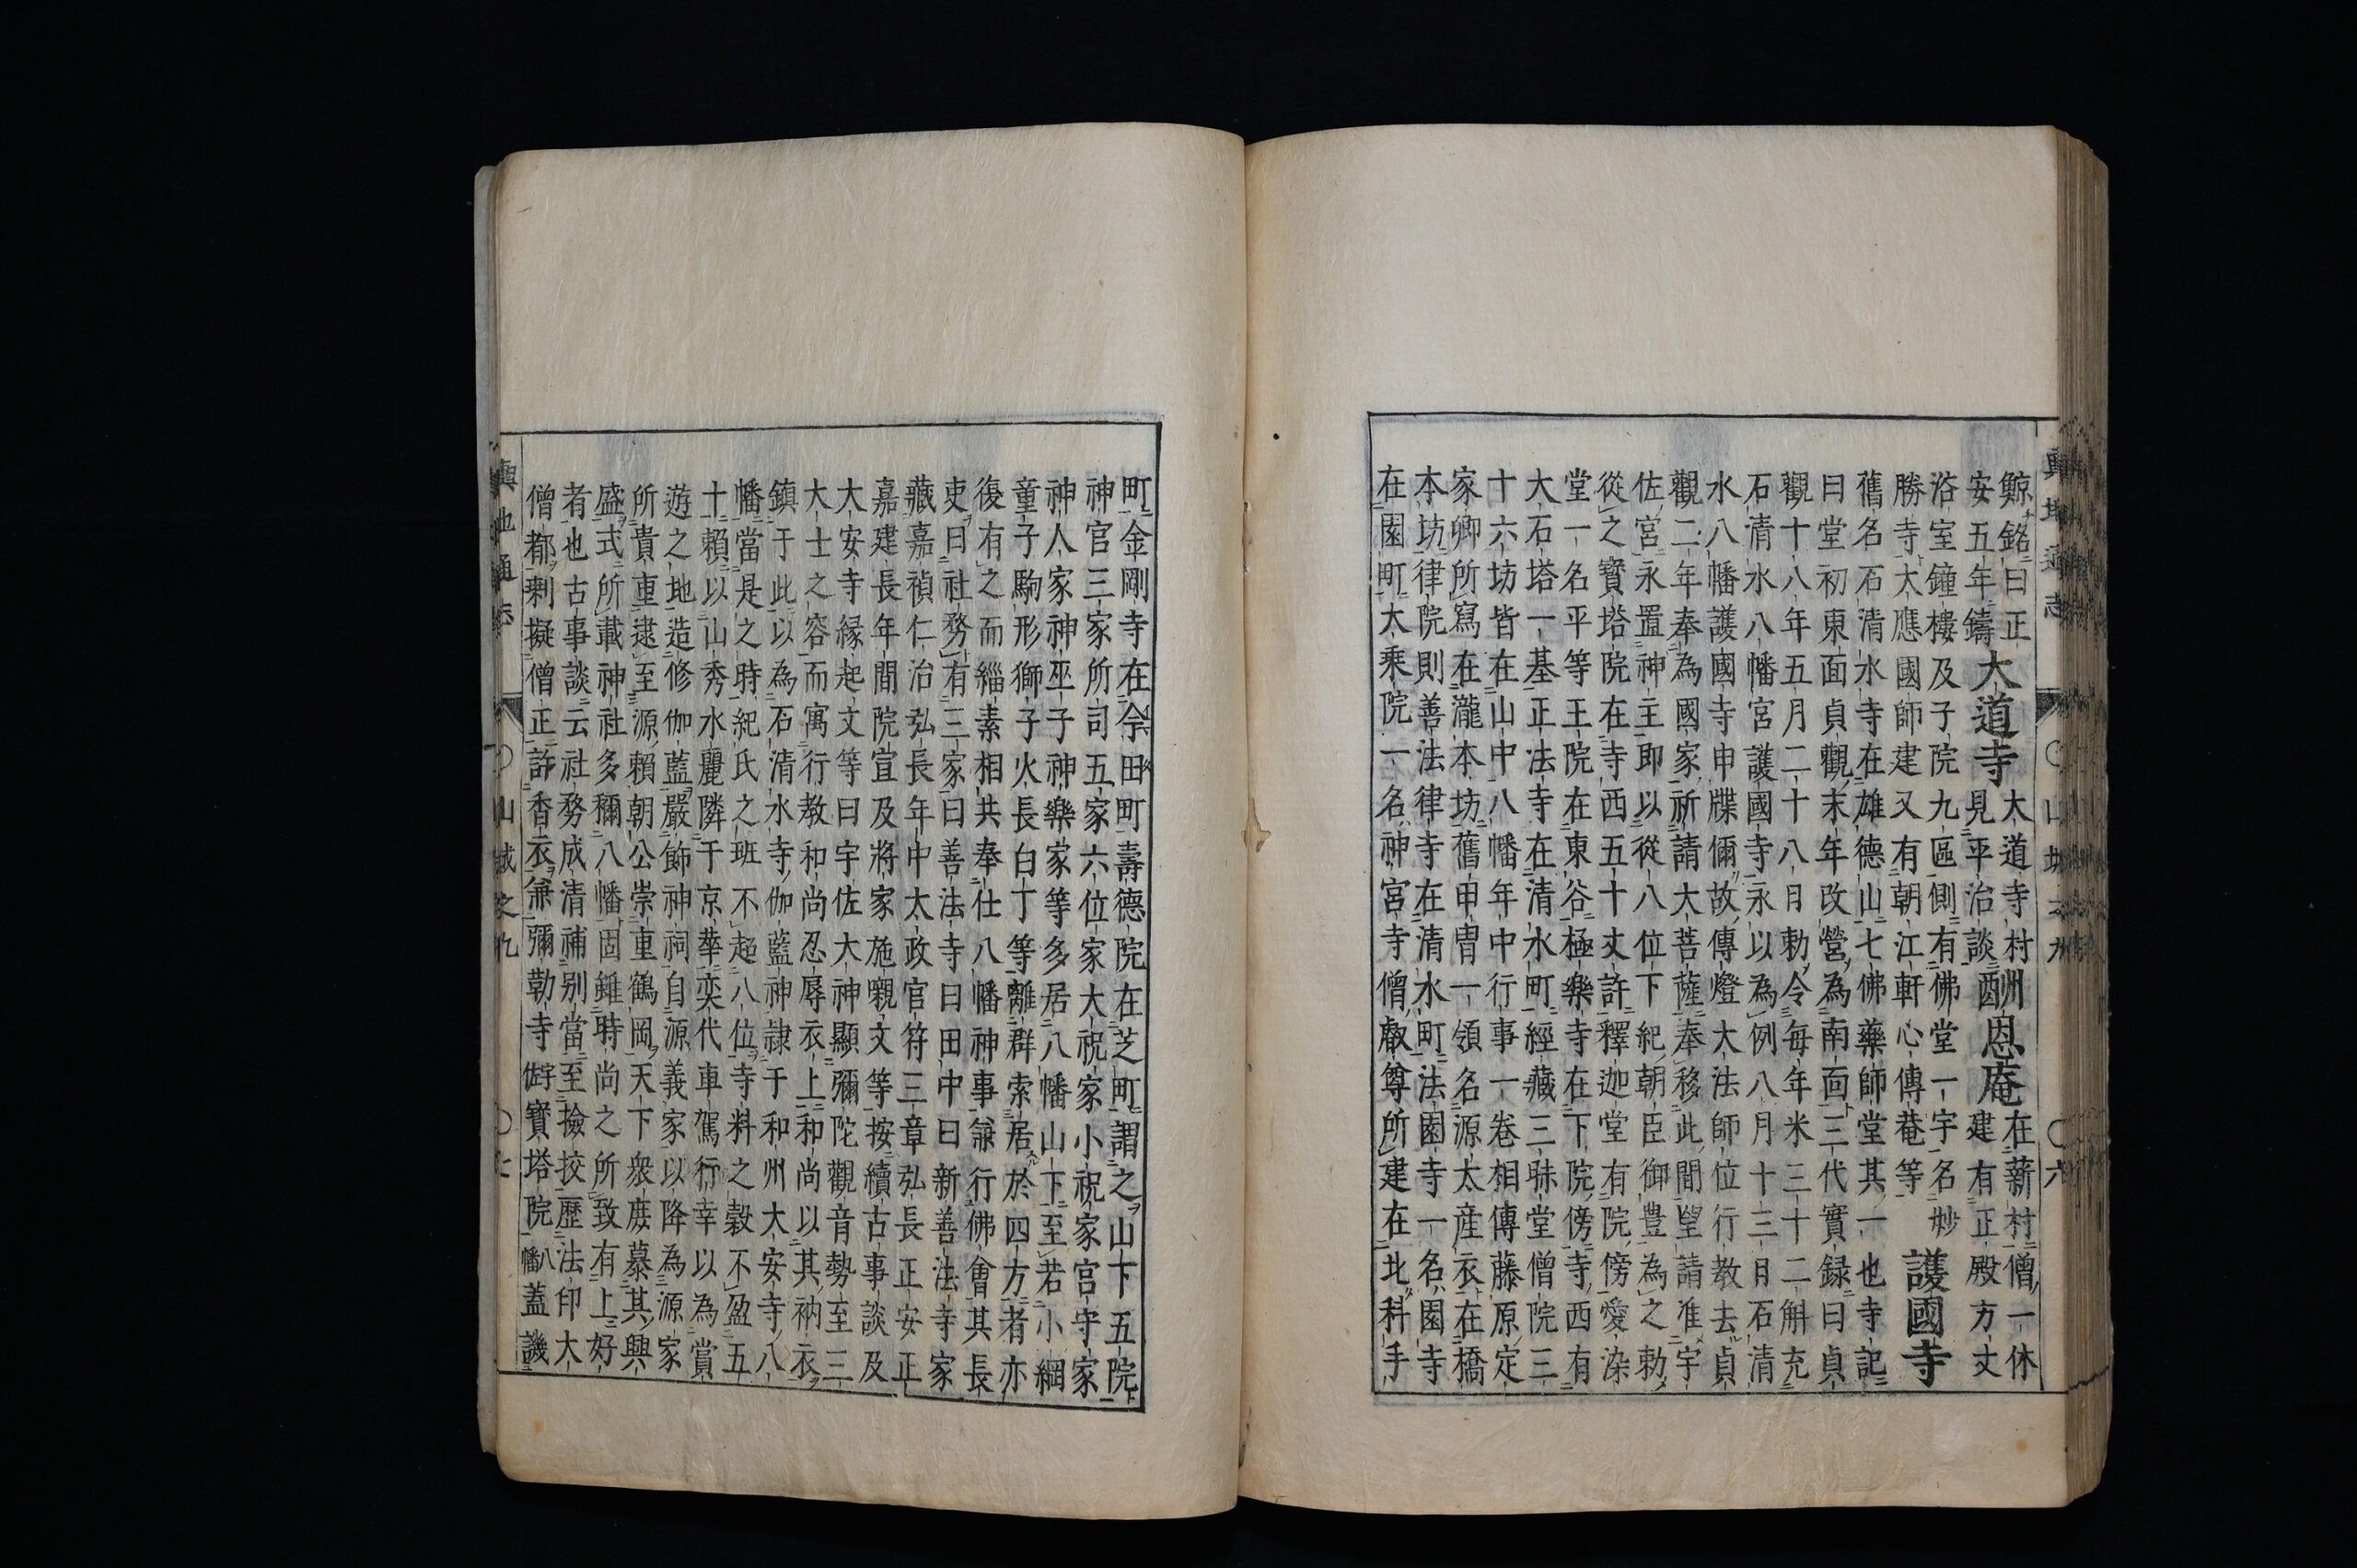 輿地通志 〇山城之九 〇六
鯨銘曰正
安五年鑄
大道寺
大道寺村
見平治談
酬恩庵
在薪村僧一休
建有正殿方丈
浴室鐘樓及子院九區側有佛堂一宇名妙
勝寺大應國師建又有朝江軒心傳菴等
護國寺
舊名石清水寺在雄德山七佛藥師堂其一也寺記
曰堂初東面貞觀末年改營為南面三代實録曰貞
觀十八年五月二十八日勅令每年米三十二斛充
石清水八幡宮護國寺永以為例八月十三日石清
水八幡護國寺申牒偁故傳燈大法師位行教去貞
觀二年奉為國家祈請大菩薩奉移此間望請准宇
佐宮永置神主即以從八位下紀朝臣御豊為之勅
從之寶塔院在寺西五十丈許釋迦堂有院傍愛染
堂一名平等王院在東谷極樂寺在下院傍寺西有
大石塔一基正法寺在清水町經藏三昧堂僧院三
十六坊皆在山中八幡年中行事一卷相傳藤原定
家卿所寫在瀧本坊舊甲冑一領名源太産衣在橋
本坊律院則善法律寺在清水町法園寺一名園寺
在園町大乗院一名神宮寺僧叡尊所建在北科手
町金剛寺在今田町壽德院在芝町謂之山下五院
神官三家所司五家六位家大祝家小祝家宮守家
神人家神巫子神樂家等多居八幡山下至若小綱
童子駒形獅子火長白丁等離群索居於四方者亦
復有之而緇素相共奉仕八幡神事兼行佛會其長
吏曰社務有三家曰善法寺曰田中曰新善法寺家
藏嘉禎仁治弘長年中太政官符三章弘長正安正
嘉建長年間院宣及將家施嚫文等按續古事談及
大安寺緣起文等曰宇佐大神顯彌陀觀音勢至三
大士之容而寓行教和尚忍辱衣上和尚以其衲衣
鎮于此以為石清水寺伽藍神隷于和州大安寺八
幡當是之時紀氏之班不起八位寺料之穀不盈五
十賴以山秀水麗隣于京華奕代車駕行幸以為賞
遊之地造修伽藍嚴飾神祠自源義家以降為源家
所貴重逮至源賴朝公崇重鶴岡天下衆庻慕其興
盛式所載神社多稱八幡固雖時尚之所致有上好
者也古事談云社務成清補别當至撿挍歷法印大
僧都剩擬僧正許香衣兼彌勒寺宇佐寶塔院八幡蓋譏
輿地通志 〇山城之九 〇七